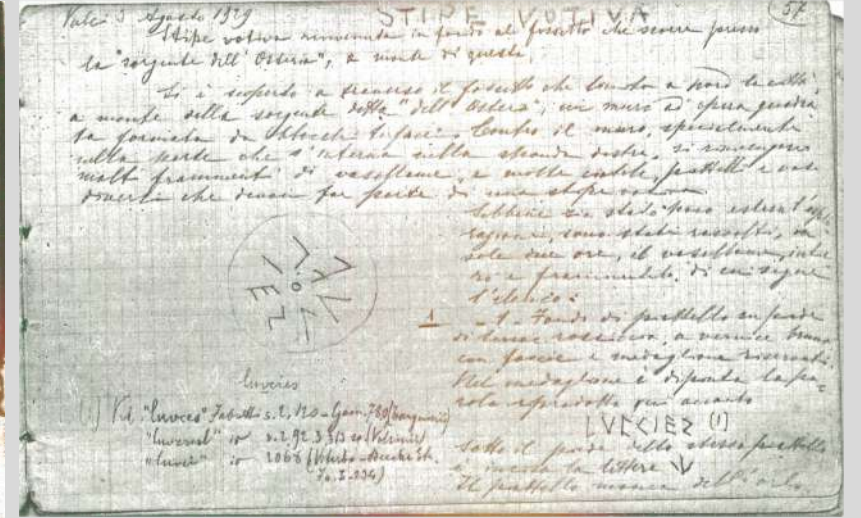 Vulci 3 Agosto 1929
STIPE VOTIVA
57
Stipe votiva rinvenuta in fondo al fossetto che scorre presso
la "sorgente dell'Osteria", a monte di questa.
Si è scoperto a traverso il fossetto che limita a nord la città,
a monte della sorgente detta "dell'Osteria", un muro ad opera quadra
ta formata da blocchi tufacei. Contro il muro, specialmente
nella parte che s'interna nella sponda destra, si rinvengono
molti frammenti di vasellame, e molte ciotole, piattelli e vasi
diversi che devon far parte di una stipe votiva
Sebbene sia stata poco estesa l'esplo
razione, sono stati raccolti, in
sole due ore, il vasellame, inte
ro e frammentato, di cui segue
l'elenco:
1 - 1 - Fondo di piattello su piede
di terra rossiccia, a vernice bruna
con fascie e medaglione riservati.
Nel medaglione è dipinta la pa-
rola riprodotta qui accanto
LVVCIEZ (1)
Sotto il piede dello stesso piattello
è incisa la lettera ↓
Il piattello manca dell'orlo
Luvcies
(1) Vd. "Luvces" Fabretti s. 2, 120 - Gam. 789 (Tarquinia)
"Luvcial" io s. 2, 92
"Luvci" io 2068 (Viterbo